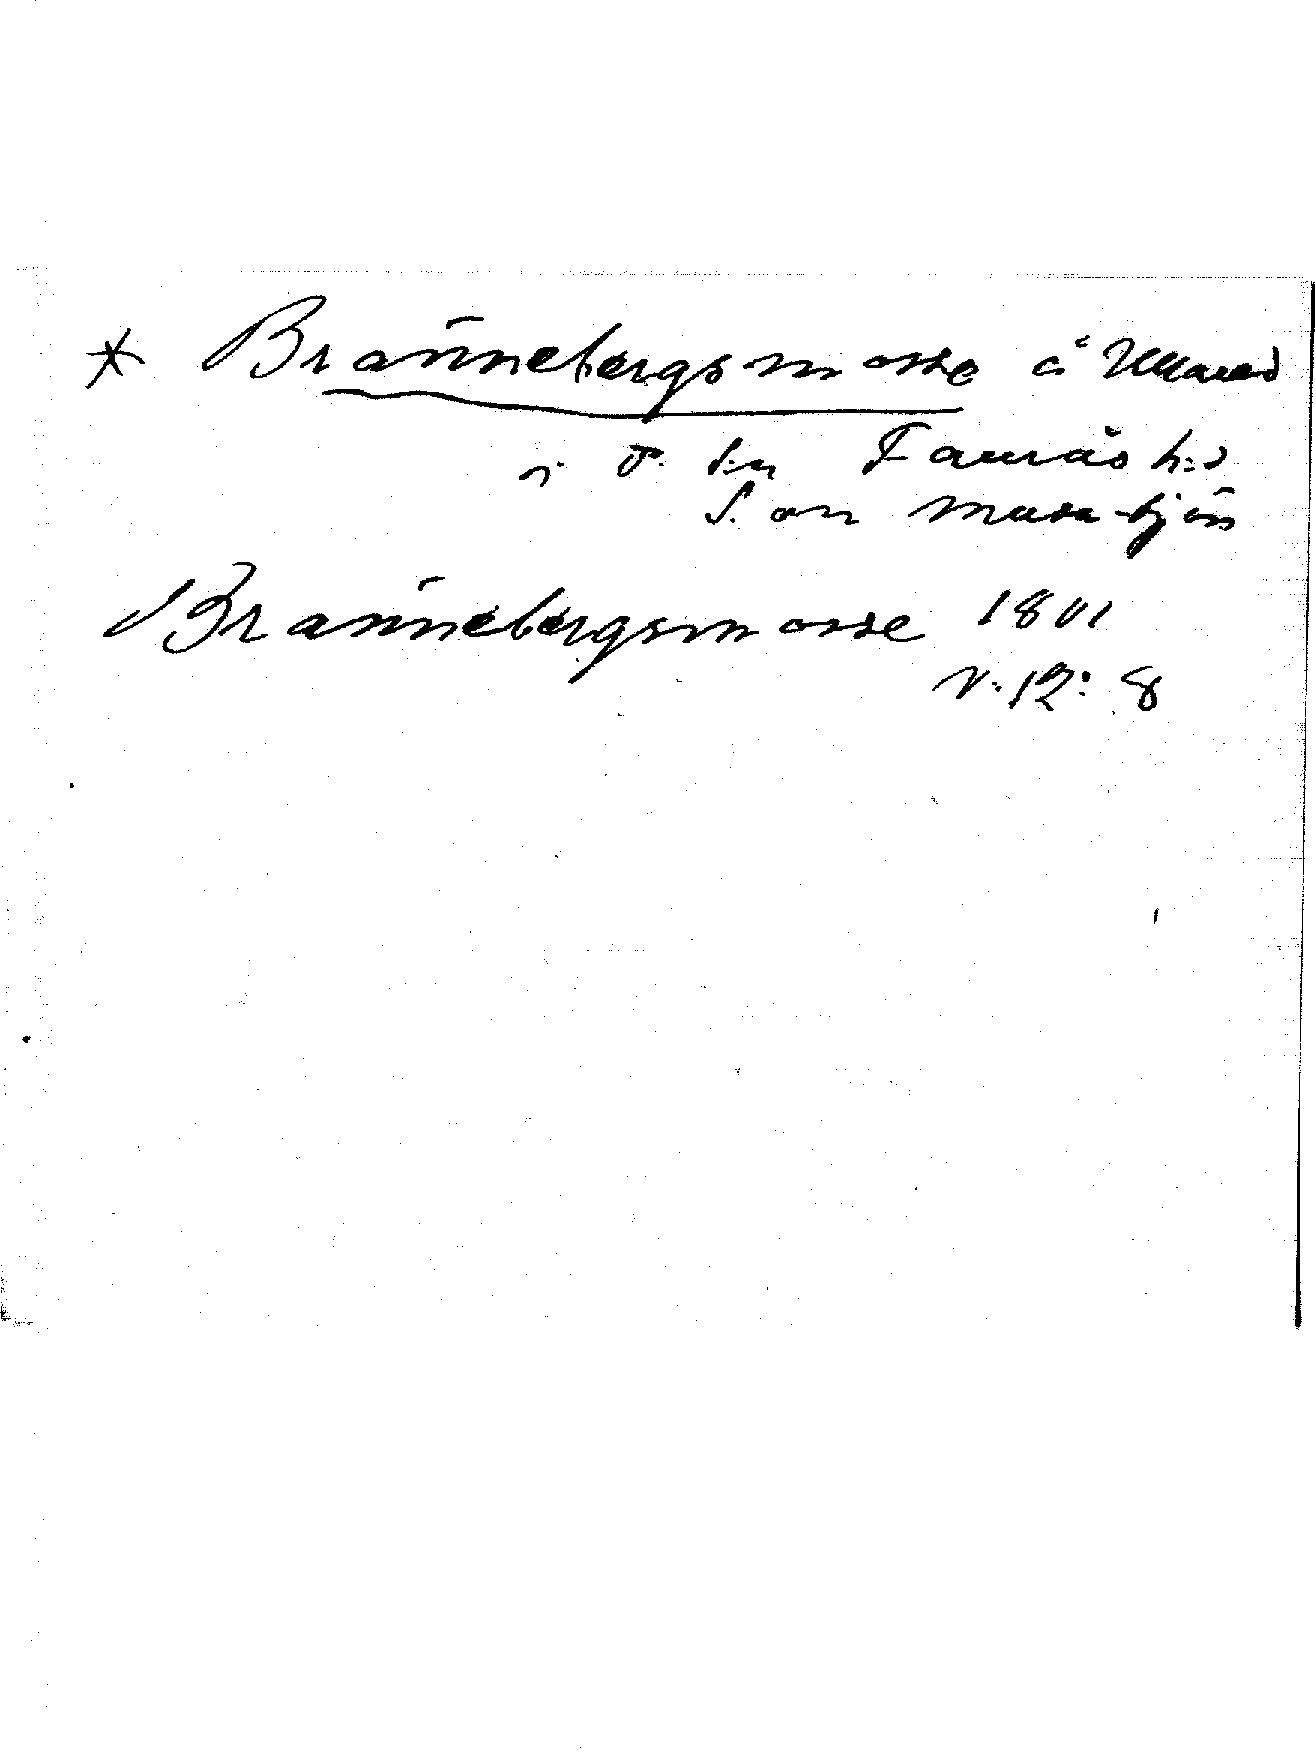 * Brännebergsmosse å Ullared
i d. s:n Faurås h:d
S. om Musasjön
Brännebergsmosse 1801
V: 12: 8